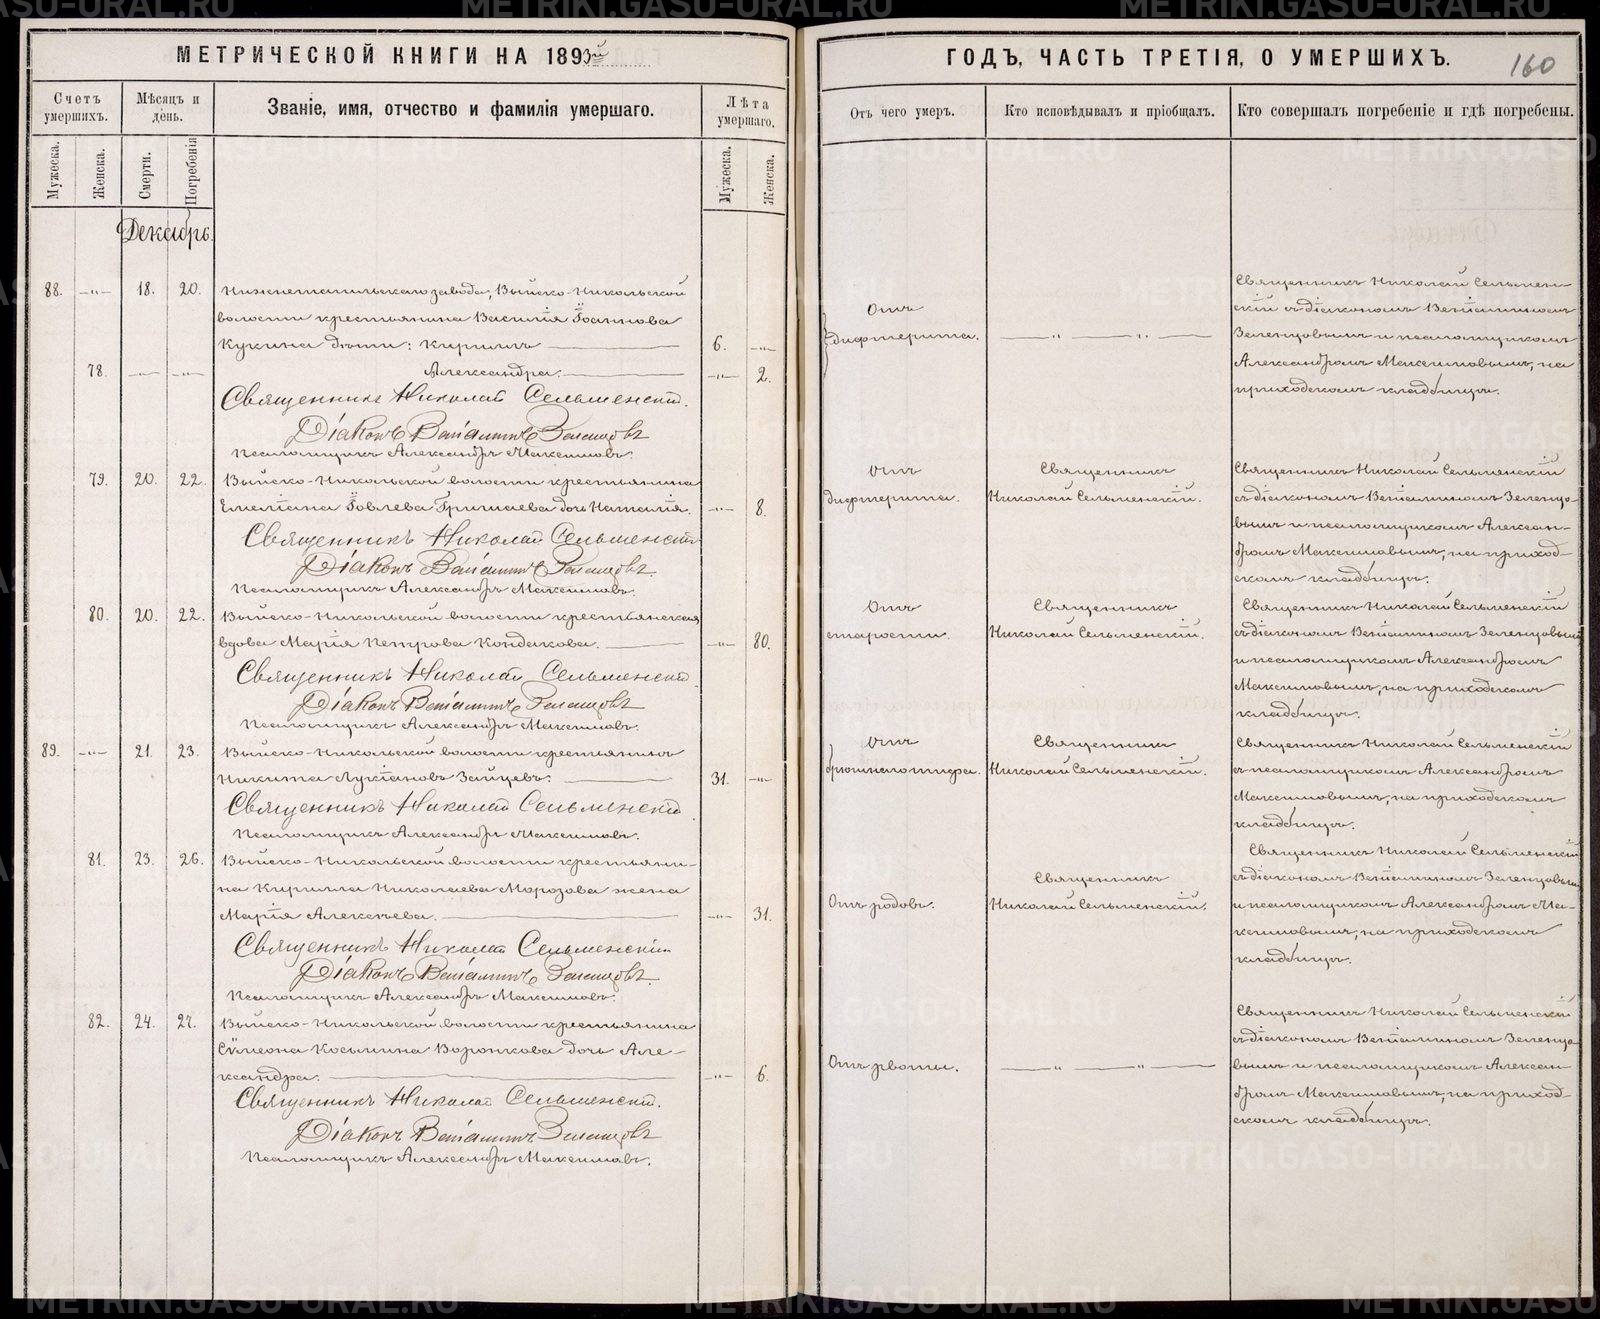 МЕТРИЧЕСКОЙ КНИГИ НА 1893й
Счетъ умершихъ.
Мѣсяцъ и день.
Званіе, имя, отчество и фамилія умершаго.
Лѣта умершаго.
Мужеска.
Женска.
Смерти.
Погребенія
Мужеска.
Женска.
Декабрь.
88. —"— 18. 20. Нижнетагильскаго завода, Выйско-Никольской
волости крестьянина Василія Іоаннова
Кукина дѣти: Кириллъ 6. —"—
78. —"— —"— Александра. —"— 2.
Священникъ Николай Сельменскій.
Діаконъ Веніаминъ Зеленцовъ
Псаломщикъ Александръ Максимовъ.
79. 20. 22. Выйско-Никольской волости крестьянина
Емеліана Іовлева Гришаева дочь Наталія. —"— 8.
Священникъ Николай Сельменскій
Діаконъ Веніаминъ Зеленцовъ.
Псаломщикъ Александръ Максимовъ.
80. 20. 22. Выйско-Никольской волости крестьянская
вдова Марія Петрова Кондакова. —"— 80.
Священникъ Николай Сельменскій
Діаконъ Веніаминъ Зеленцовъ
Псаломщикъ Александръ Максимовъ.
89. —"— 21. 23. Выйско-Никольской волости крестьянинъ
Никита Лукіановъ Зайцевъ. 31. —"—
Священникъ Николай Сельменскій
Псаломщикъ Александръ Максимовъ.
81. 23. 26. Выйско-Никольской волости крестьяни-
на Кирилла Николаева Морозова жена
Марія Алексѣева. —"— 31.
Священникъ Николай Сельменскій
Діаконъ Веніаминъ Зеленцовъ.
Псаломщикъ Александръ Максимовъ.
82. 24. 27. Выйско-Никольской волости крестьянина
Сѵмеона Косьмина Воронкова дочь Але-
ксандра. —"— 6.
Священникъ Николай Сельменскій.
Діаконъ Веніаминъ Зеленцовъ
Псаломщикъ Александръ Максимовъ.
ГОДЪ, ЧАСТЬ ТРЕТІЯ, О УМЕРШИХЪ.
160
Отъ чего умеръ.
Кто исповѣдывалъ и пріобщалъ.
Кто совершалъ погребеніе и гдѣ погребены.
Отъ
дифтерита.
—"—"—
Священникъ Николай Сельмен-
скій съ діакономъ Веніаминомъ
Зеленцовымъ и псаломщикомъ
Александромъ Максимовымъ, на
приходскомъ кладбищѣ.
Отъ
дифтерита.
Священникъ
Николай Сельменскій.
Священникъ Николай Сельменскій
съ діакономъ Веніаминомъ Зеленцо-
вымъ и псаломщикомъ Алексан-
дромъ Максимовымъ, на приход-
скомъ кладбищѣ.
Отъ
старости.
Священникъ
Николай Сельменскій.
Священникъ Николай Сельменскій
съ діакономъ Веніаминомъ Зеленцовымъ
и псаломщикомъ Александромъ
Максимовымъ, на приходскомъ
кладбищѣ.
Отъ
брюшнаго тифа.
Священник
Николай Сельменскій.
Священникъ Николай Сельменскій
съ псаломщикомъ Александромъ
Максимовымъ, на приходскомъ
кладбищѣ.
Отъ родовъ.
Священникъ
Николай Сельменскій.
Священникъ Николай Сельменскій
съ діакономъ Веніаминомъ Зеленцовымъ
и псаломщикомъ Александромъ Ма-
ксимовымъ, на приходскомъ
кладбищѣ.
Отъ рвоты.
—"—"—
Священникъ Николай Сельменскій
съ діакономъ Веніаминомъ Зеленцо-
вымъ и псаломщикомъ Алексан-
дромъ Максимовымъ, на приход-
скомъ кладбищѣ.
METRIKI.GASO-URAL.RU